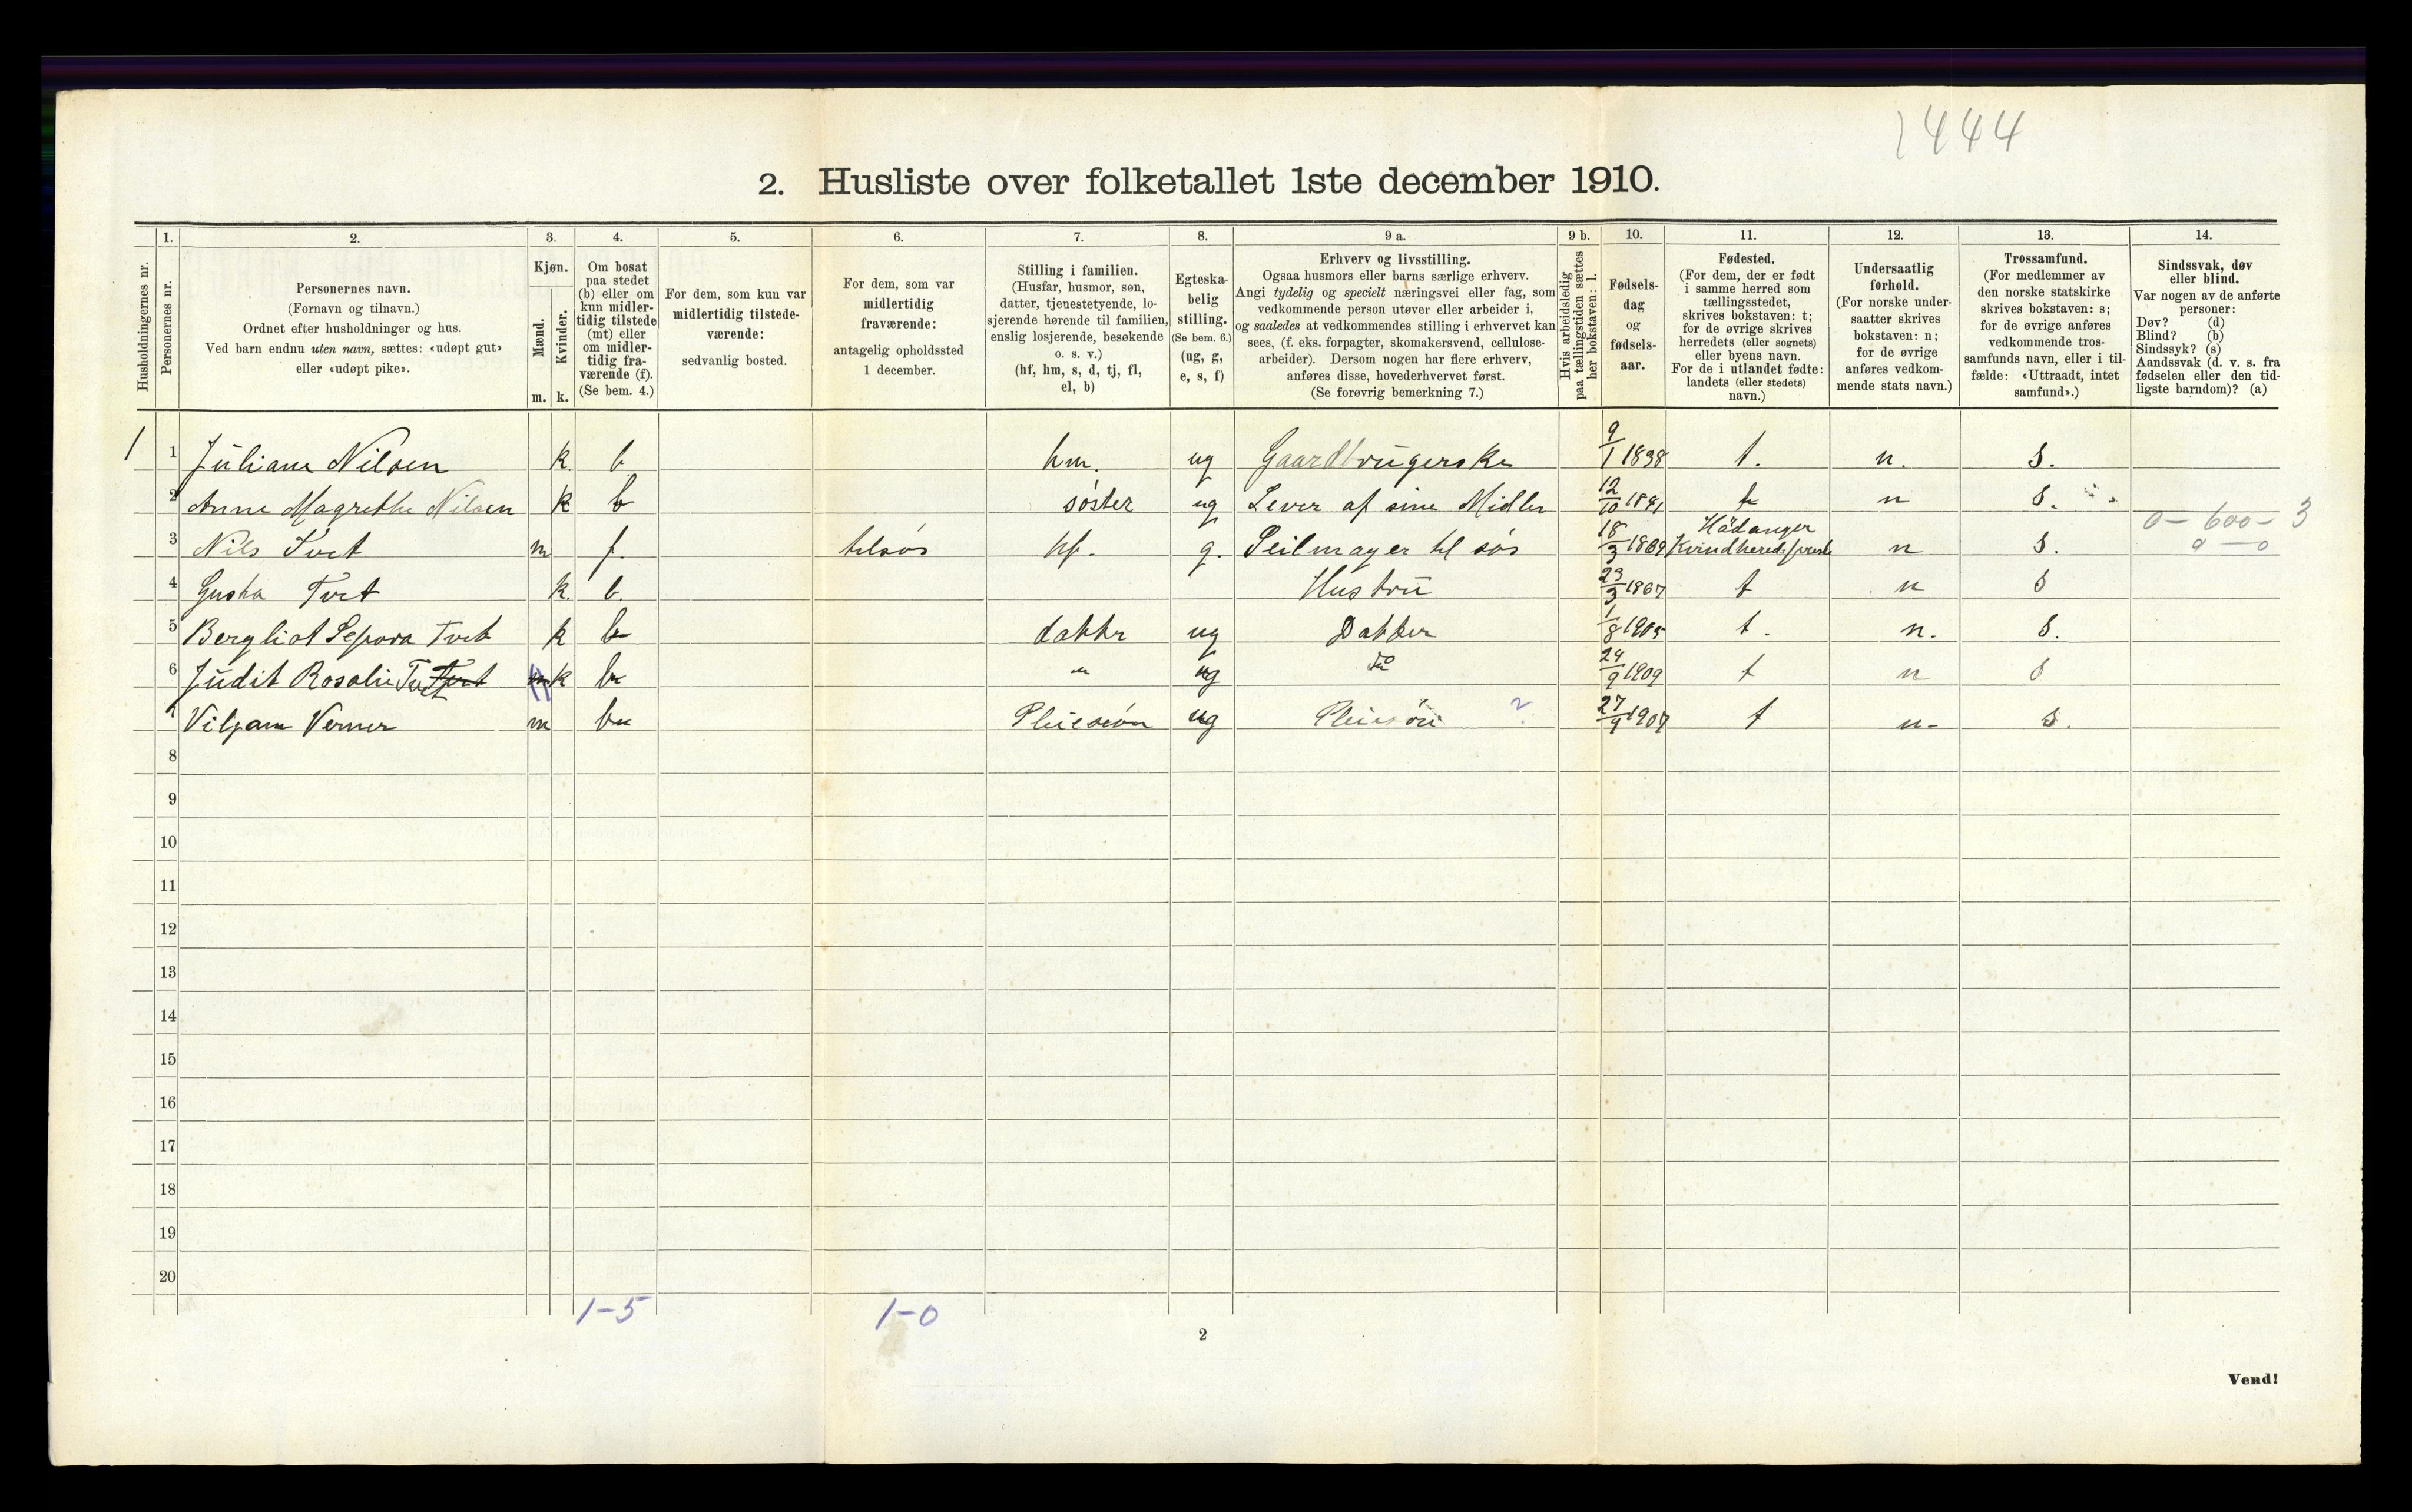 1444
2. Husliste over folketallet 1ste december 1910.
Husholdningernes nr.
1.
Personernes nr.
2.
Personernes navn.
(Fornavn og tilnavn.)
Ordnet efter husholdninger og hus.
Ved barn endnu uten navn, sættes: «udøpt gut»
eller «udøpt pike».
3.
Kjøn.
Mænd.
Kvinder.
m. k.
4.
Om bosat
paa stedet
(b) eller om
kun midler-
tidig tilstede
(mt) eller
om midler-
tidig fra-
værende (f).
(Se bem. 4.)
5.
For dem, som kun var
midlertidig tilstede-
værende:
sedvanlig bosted.
6.
For dem, som var
midlertidig
fraværende:
antagelig opholdssted
1 december.
7.
Stilling i familien.
(Husfar, husmor, søn,
datter, tjenestetyende, lo-
sjerende hørende til familien,
enslig losjerende, besøkende
o. s. v.)
(hf, hm, s, d, tj, fl,
el, b)
8.
Egteska-
belig
stilling.
(Se bem. 6.)
(ug, g,
e, s, f)
9 a.
Erhverv og livsstilling.
Ogsaa husmors eller barns særlige erhverv.
Angi tydelig og specielt næringsvei eller fag, som
vedkommende person utøver eller arbeider i,
og saaledes at vedkommendes stilling i erhvervet kan
sees, (f. eks. forpagter, skomakersvend, cellulose-
arbeider). Dersom nogen har flere erhverv,
anføres disse, hovederhvervet først.
(Se forøvrig bemerkning 7.)
9 b.
Hvis arbeidsledig
paa tællingstiden sættes
her bokstaven: l.
10.
Fødsels-
dag
og
fødsels-
aar.
11.
Fødested.
(For dem, der er født
i samme herred som
tællingsstedet,
skrives bokstaven: t;
for de øvrige skrives
herredets (eller sognets)
eller byens navn.
For de i utlandet fødte:
landets (eller stedets)
navn.)
12.
Undersaatlig
forhold.
(For norske under-
saatter skrives
bokstaven: n;
for de øvrige
anføres vedkom-
mende stats navn.)
13.
Trossamfund.
(For medlemmer av
den norske statskirke
skrives bokstaven: s;
for de øvrige anføres
vedkommende tros-
samfunds navn, eller i til-
fælde: «Uttraadt, intet
samfund».)
14.
Sindssvak, døv
eller blind.
Var nogen av de anførte
personer:
Døv? (d)
Blind? (b)
Sindssyk? (s)
Aandssvak (d. v. s. fra
fødselen eller den tid-
ligste barndom)? (a)
1 1 Juliane Nilsen k. b hm. ug Gaardbrugerske 9/1 1838 t. n. s.
2 Anne Magrethe Nilsen k b søster ug Lever af sine Midler 12/10 t n s.
3 Nils Tvet m f. tilsøs hf. g. Seilmager til søs 18/3 1869 Hådanger Kvindhered n s. 0 - 600 - 3
0 - 0
4 Gusta Tvet k. b. Hustru 23/3 1867 t n s
5 Bergliot Sepora Tvet k b datter ug Datter 1/8 1905 t. n. s.
6 Judit Rosalie Tvet k b " ug do 24/9 1909 t n s
7 Viljam Verner m b Pleiesøn ug Pleiesøn ? 27/9 1907 t n- s.
8
9
10
11
12
13
14
15
16
17
18
19
20
1-5 1-0
2
Vend!